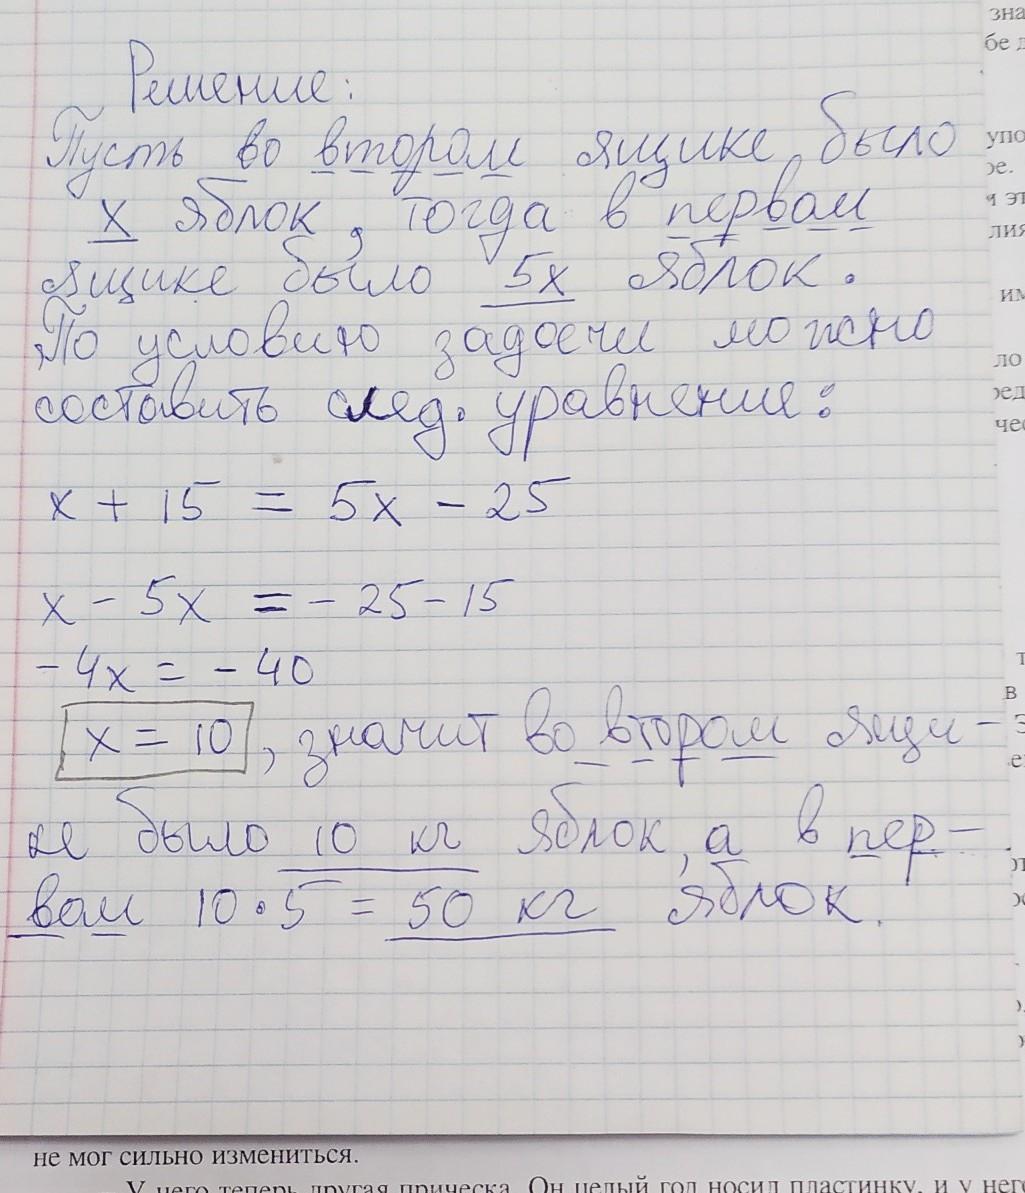 Решение:
Пусть во втором ящике было
x яблок, тогда в первом
ящике было 5x яблок.
По условию задачи можно
составить след. уравнение:
x + 15 = 5x - 25
x - 5x = - 25 - 15
- 4x = - 40
x = 10, значит во втором ящи-
ке было 10 кг яблок, а в пер-
вом 10 • 5 = 50 кг яблок.
не мог сильно измениться.
У него теперь другая прическа. Он целый год носил пластинку, и у него